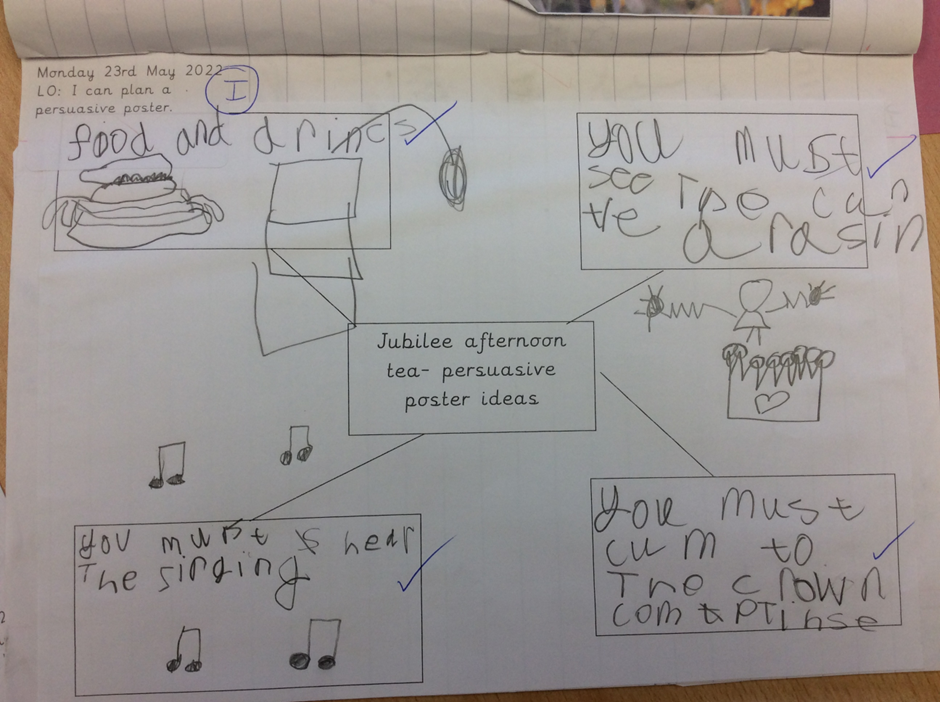 Monday 23rd May 2022
LO: I can plan a
persuasive poster.
I
food and drincs
you must
see The can
ve arasin
Jubilee afternoon
tea- persuasive
poster ideas
you must hear
The singing
you must
cum to
The crown